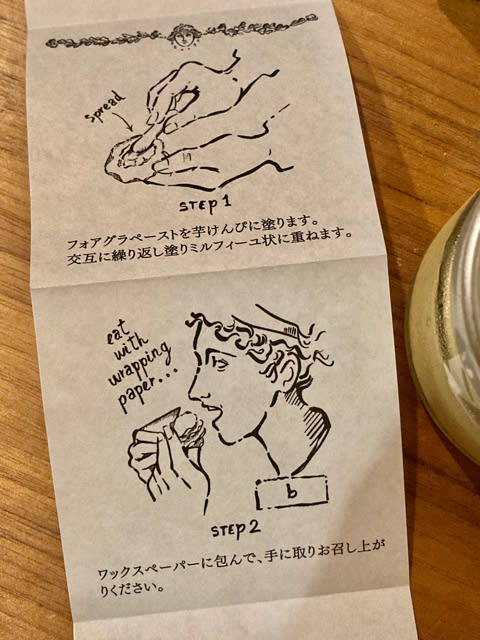 spread
STEP 1
フォアグラペーストを芋けんぴに塗ります。
交互に繰り返し塗りミルフィーユ状に重ねます。
eat
with
wrapping
paper...
b
STEP 2
ワックスペーパーに包んで、手に取りお召し上が
りください。